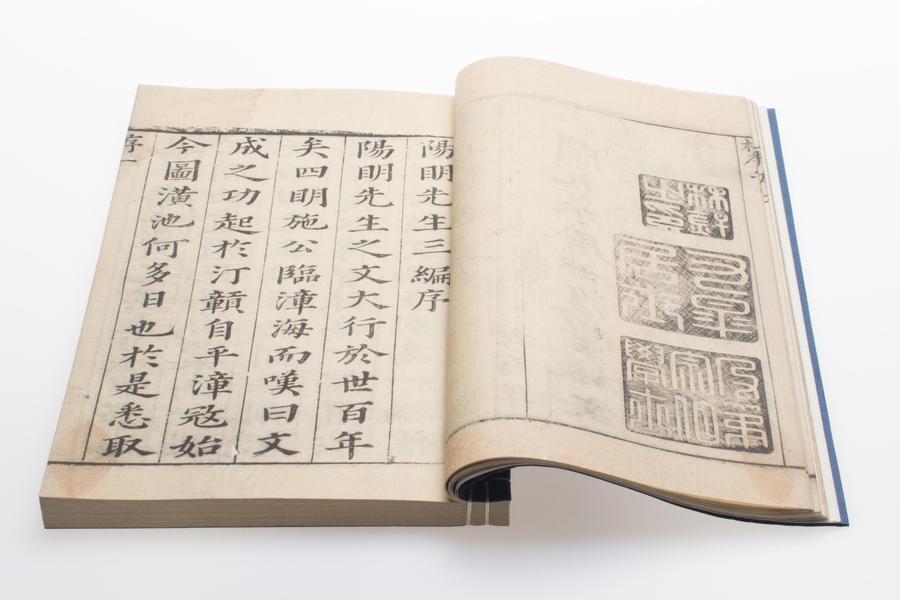 陽明先生三編序
陽明先生之文大行於世百年
矣四明施公臨漳海而嘆曰文
成之功起扵汀贑自平漳冦始
今圖潢池何多日也扵是悉取